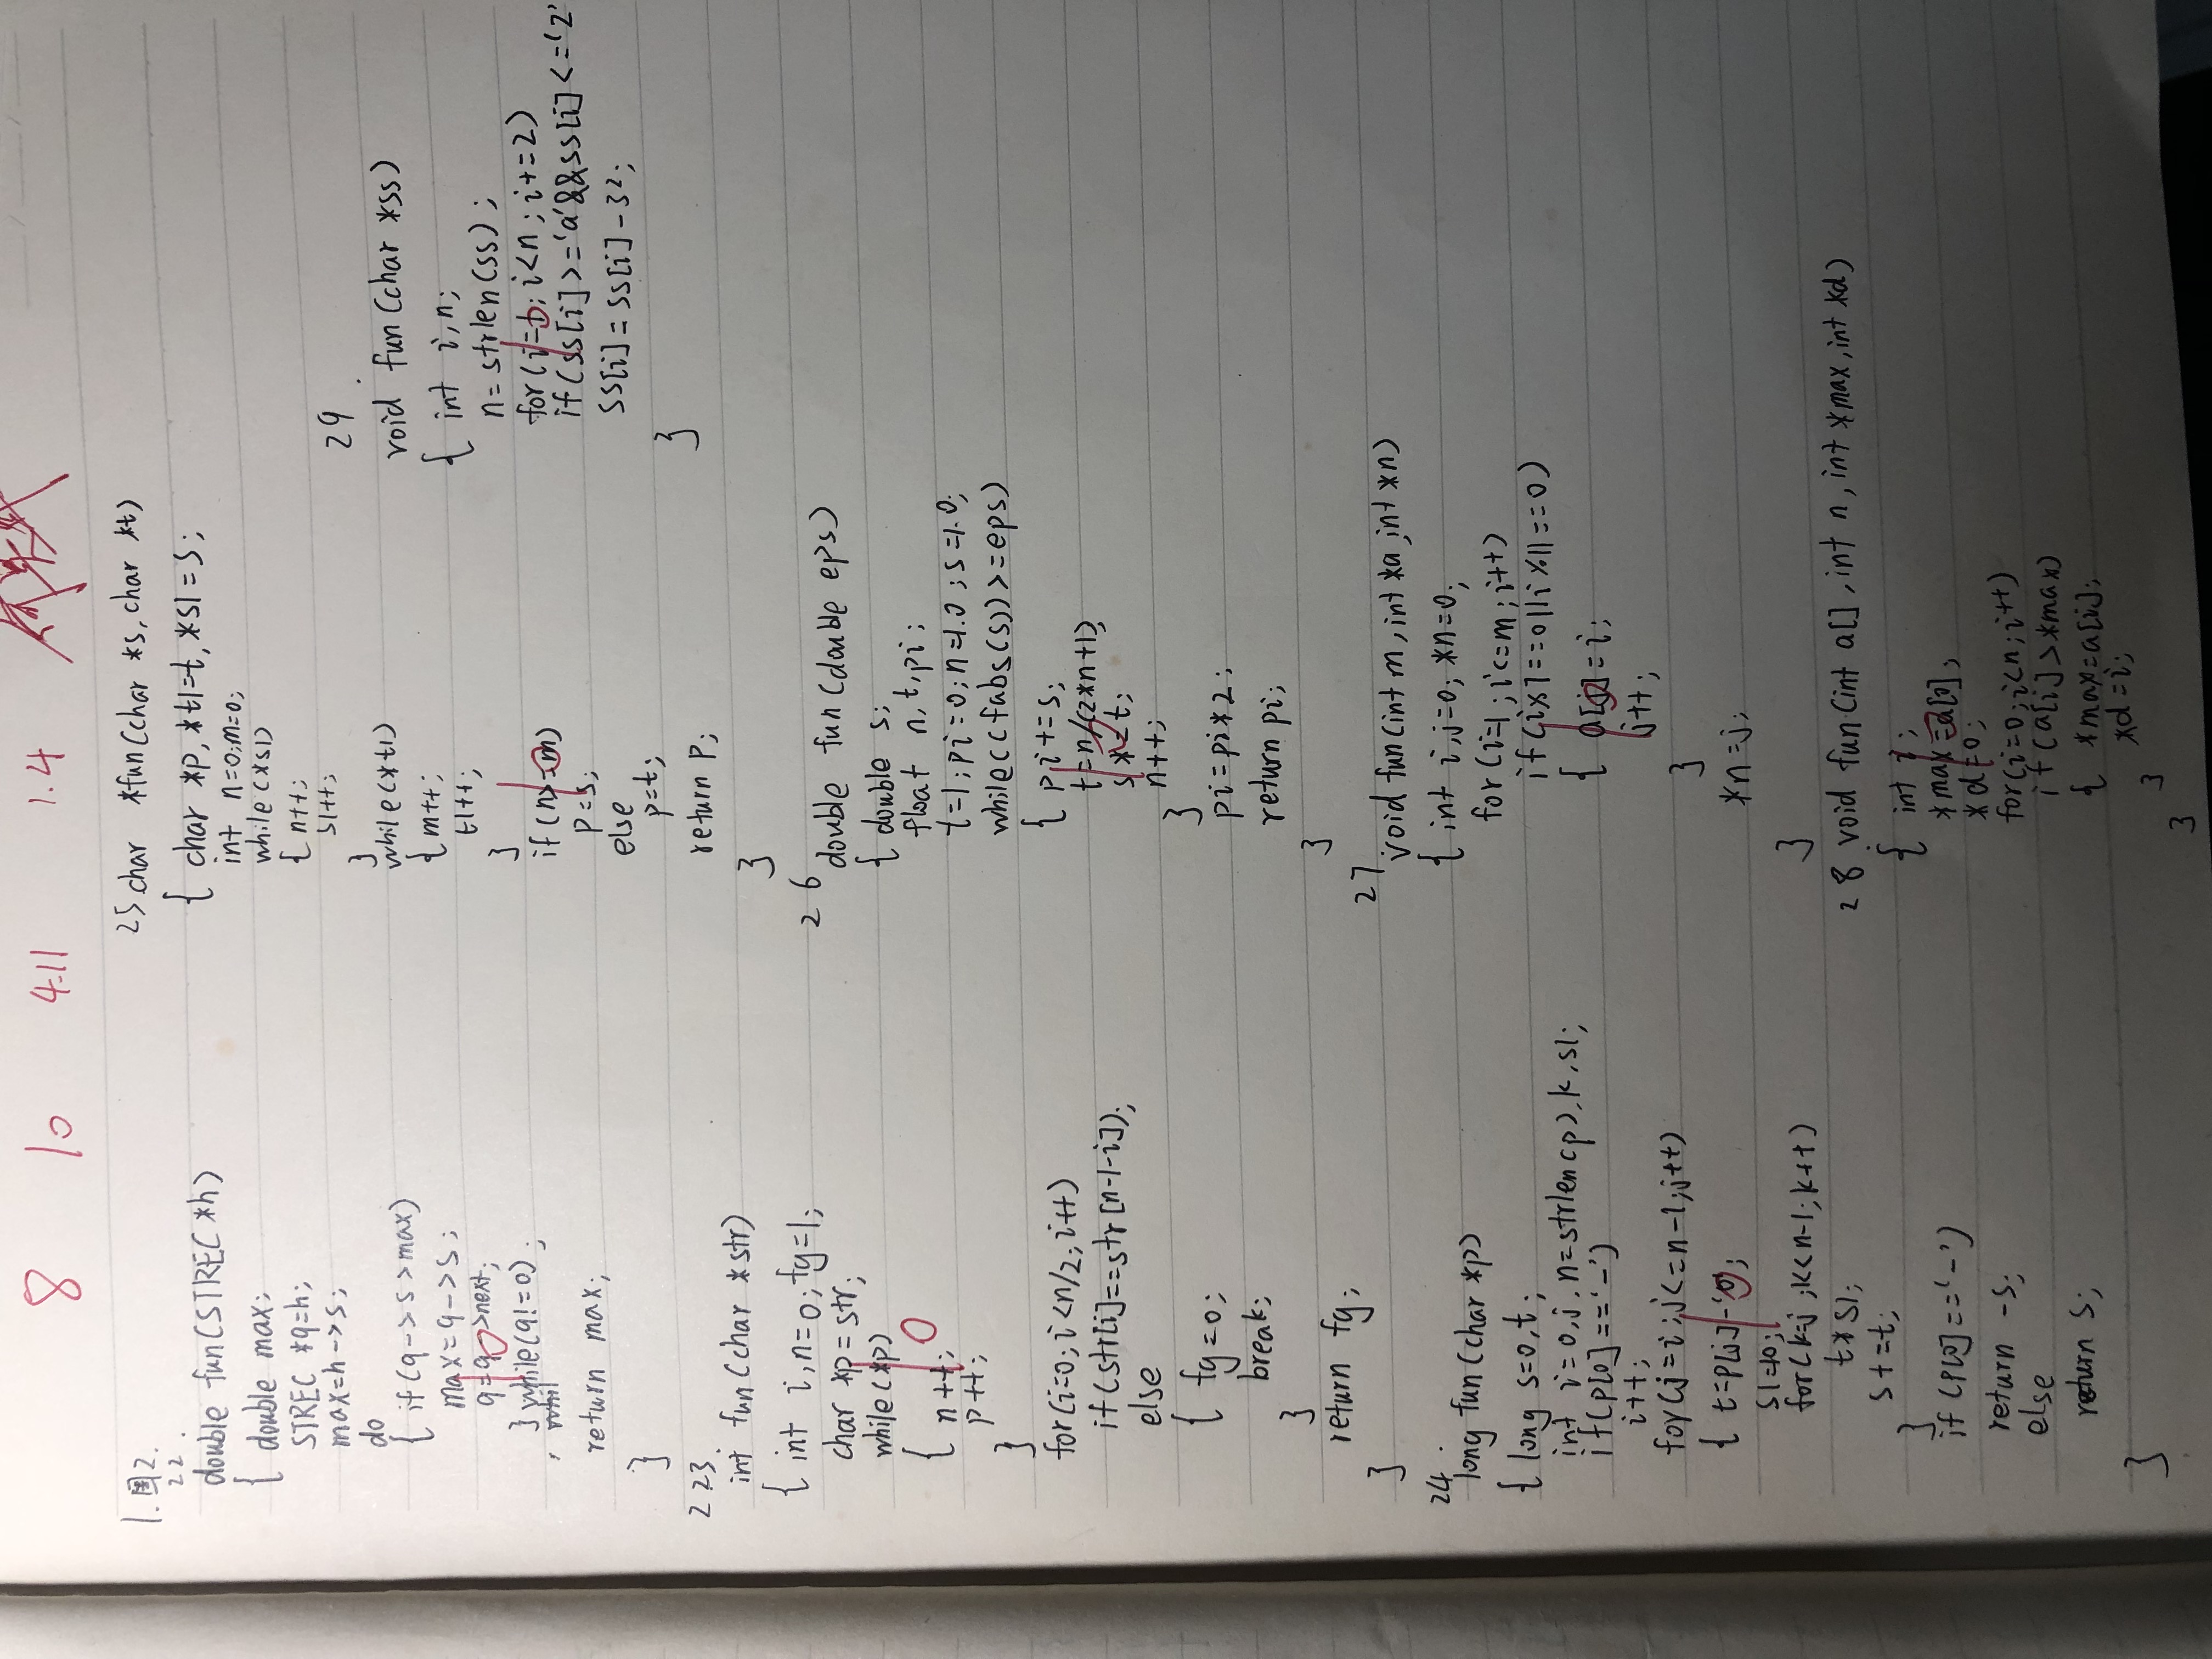 8 10 4.11 1.4
1.国2.
22.
double fun(STREC *h)
{ double max;
STREC *q=h;
max=h->s;
do
{ if(q->s>max)
max=q->s;
q=q->next;
} while(q!=0);
return max;
}
23.
int fun(char *str)
{ int i,n=0;fg=1;
char *p=str;
while(*p)
{ n++;
p++;
}
for(i=0;i<n/2;i++)
if(str[i]==str[n-1-i]);
else
{ fg=0;
break;
}
return fg;
}
24.
long fun(char *p)
{ long s=0,t;
int i=0,j,n=strlen(p),k,s1;
if(p[0]=='-')
i++;
for(j=i;j<=n-1;j++)
{ t=p[j]-'0';
s1=10;
for(k=j;k<n-1;k++)
t*s1;
s+=t;
}
if(p[0]=='-')
return -s;
else
return s;
}
25 char *fun(char *s,char *t)
{ char *p,*t1=t,*s1=s;
int n=0;m=0;
while(*s1)
{ n++;
s1++;
}
while(*t1)
{ m++;
t1++;
}
if(n>=m)
p=s;
else
p=t;
return p;
}
26
double fun(double eps)
{ double s;
float n,t,pi;
t=1;pi=0;n=1.0;s=1.0;
while((fabs(s))>=eps)
{ pi+=s;
t=n/(2*n+1);
s*=t;
n++;
}
pi=pi*2;
return pi;
}
27
void fun(int m,int *a,int *n)
{ int i,j=0;*n=0;
for(i=1;i<=m;i++)
if(i%7==0||i%11==0)
{ a[j]=i;
j++;
}
*n=j;
}
28 void fun(int a[],int n,int *max,int *d)
{ int i;
*max=a[0];
*d=0;
for(i=0;i<n;i++)
if(a[i]>*max)
{ *max=a[i];
*d=i;
}
}
29
void fun(char *ss)
{ int i,n;
n=strlen(ss);
for(i=b;i<n;i+=2)
if(ss[i]>='a'&&ss[i]<='z'
ss[i]=ss[i]-32;
}